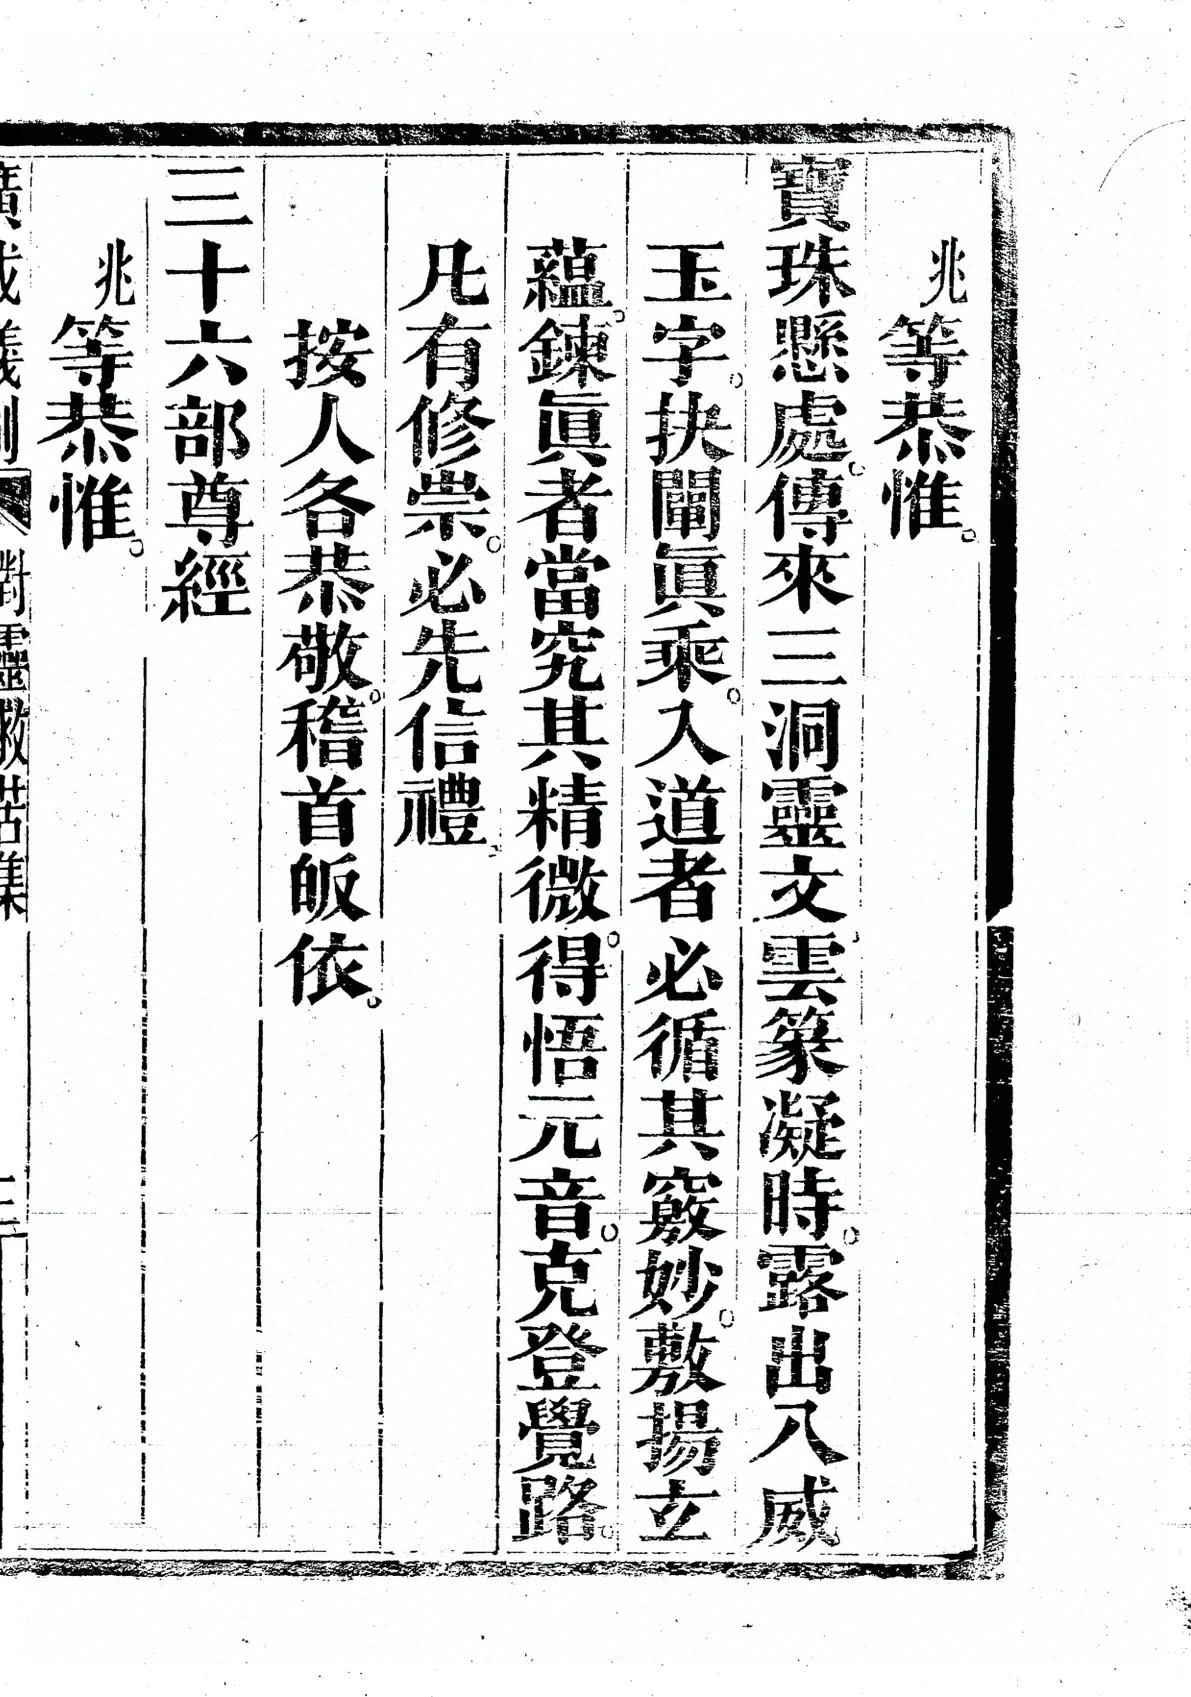 兆等恭惟。
寶珠懸處。傳來三洞靈文。雲篆凝時。露出八威
玉字。抉闡眞乘。入道者必循其竅妙。敷揚玄
蘊。鍊眞者當究其精微。得悟元音。克登覺路。
凡有修崇。必先信禮。
按人各恭敬。稽首皈依。
三十六部尊經
兆等恭惟。
廣成儀制 對靈救苦集 三